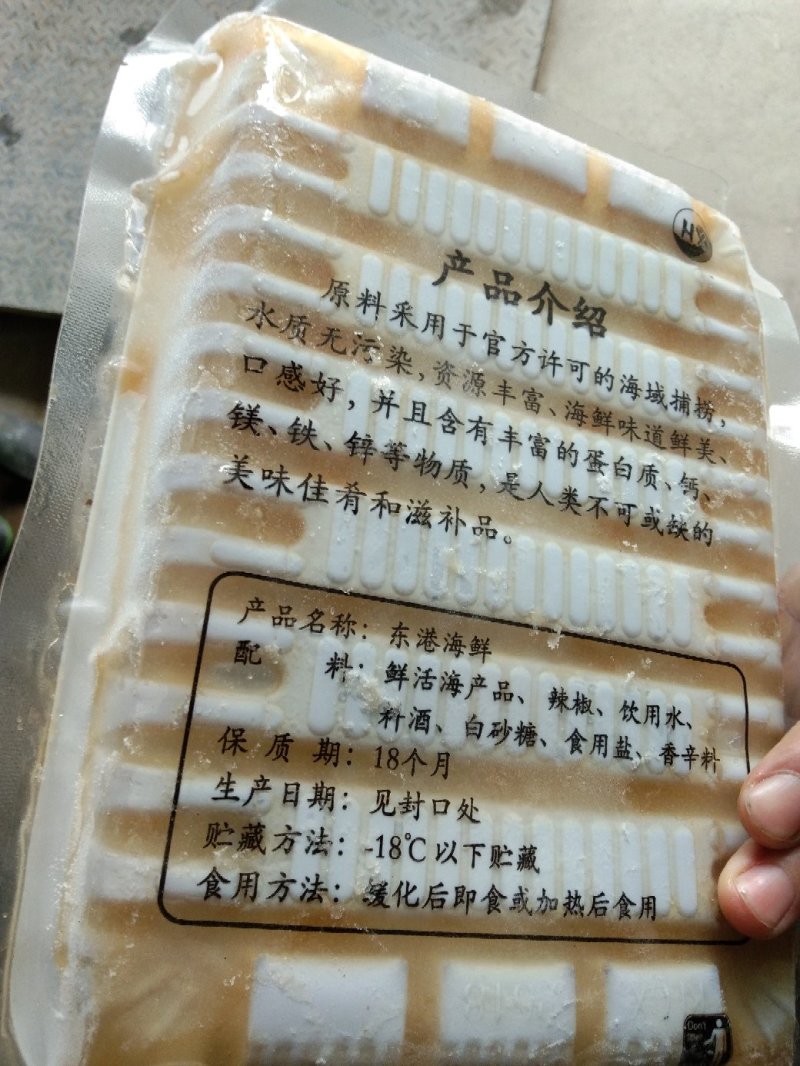 产品介绍
原料采用于官方许可的海域捕捞，
水质无污染，资源丰富、海鲜味道鲜美、
口感好，并且含有丰富的蛋白质、钙、
镁、铁、锌等物质，是人类不可或缺的
美味佳肴和滋补品。
产品名称：东港海鲜
配 料：鲜活海产品、辣椒、饮用水、
料酒、白砂糖、食用盐、香辛料
保 质 期：18个月
生产日期：见封口处
贮藏方法：-18℃以下贮藏
食用方法：缓化后即食或加热后食用
Don't